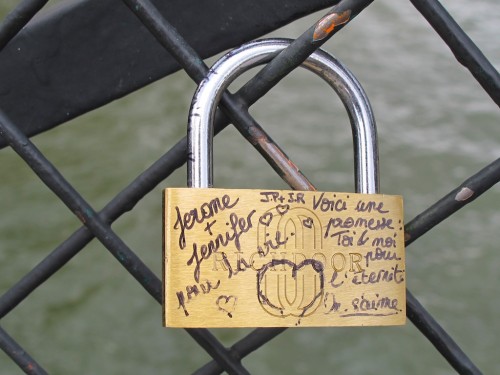 Jerome
+
Jennifer
pour la vie
J.P + J.R
Voici une
promesse:
Toi & moi
pour
l'eternité
On s'aime